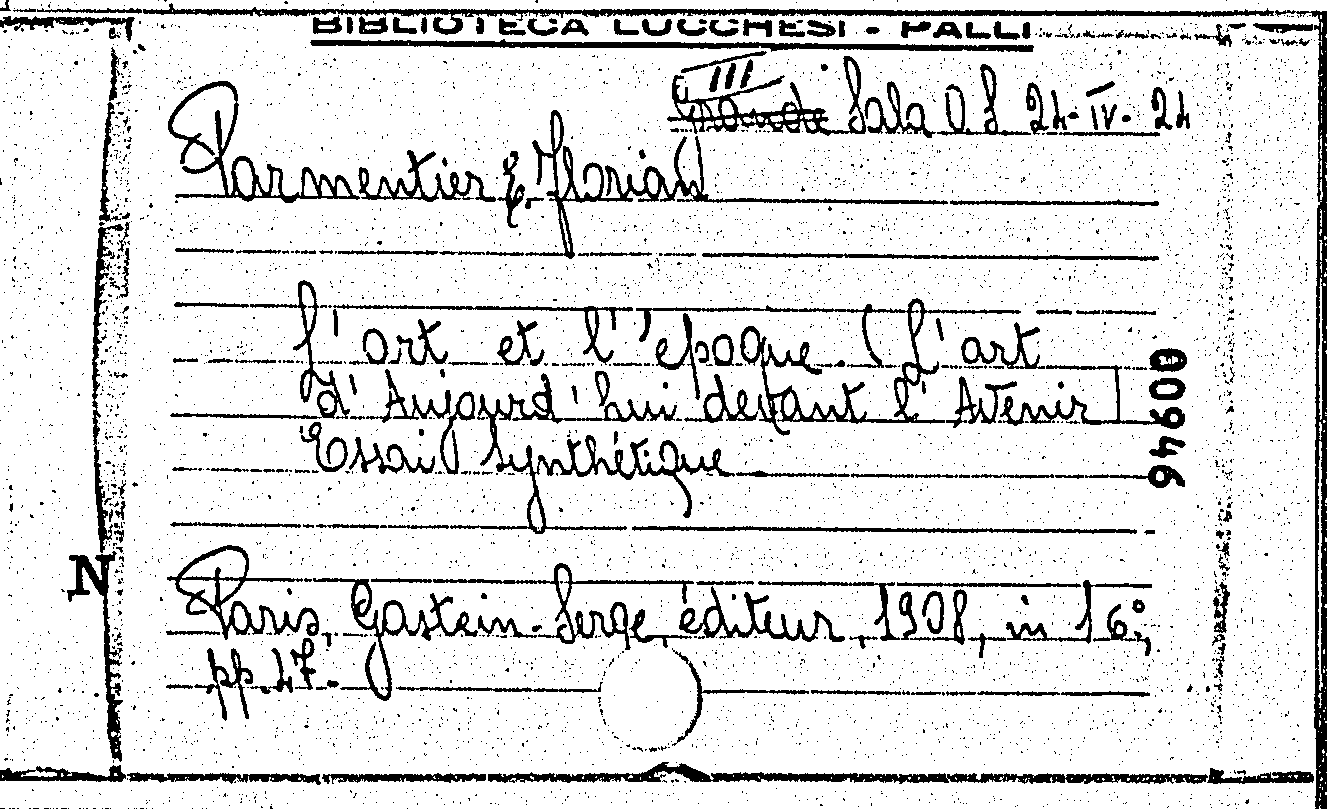 BIBLIOTECA LUCCHESI - PALLI
III
Grande Sala O. S. 24-IV-24
Parmentier E. Florian
L'art et l'époque. (L'art
d'Aujourd'hui devant l'Avenir)
Essai Synthétique
00946
N
Paris, Gastein-Serge, éditeur, 1908, in 16°,
pp. 47.